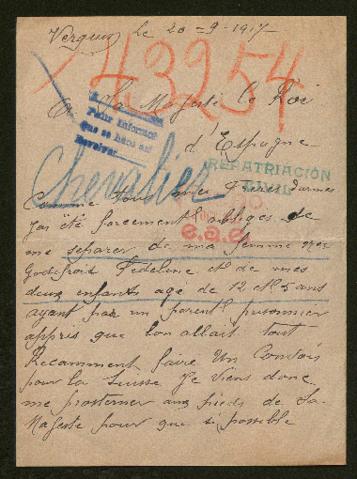 Le 20-9-1917
43254
A Sa Majesté le Roi
d'Espagne
Pedir informes
Que se hace así
Chevalier
REPATRIACIÓN
CIVIL
Comme tous mes Frères d'armes
J'ai été forcement obligés de
me séparer de ma femme née
Godefroid Fideline et de mes
deux enfants agé de 12 et 5 ans
ayant par un parent prisonnier
appris que l'on allait tout
Récamment faire Un Convois
pour la Suisse Je viens donc
me prosterner aux pieds de Sa
Majesté pour que si possible